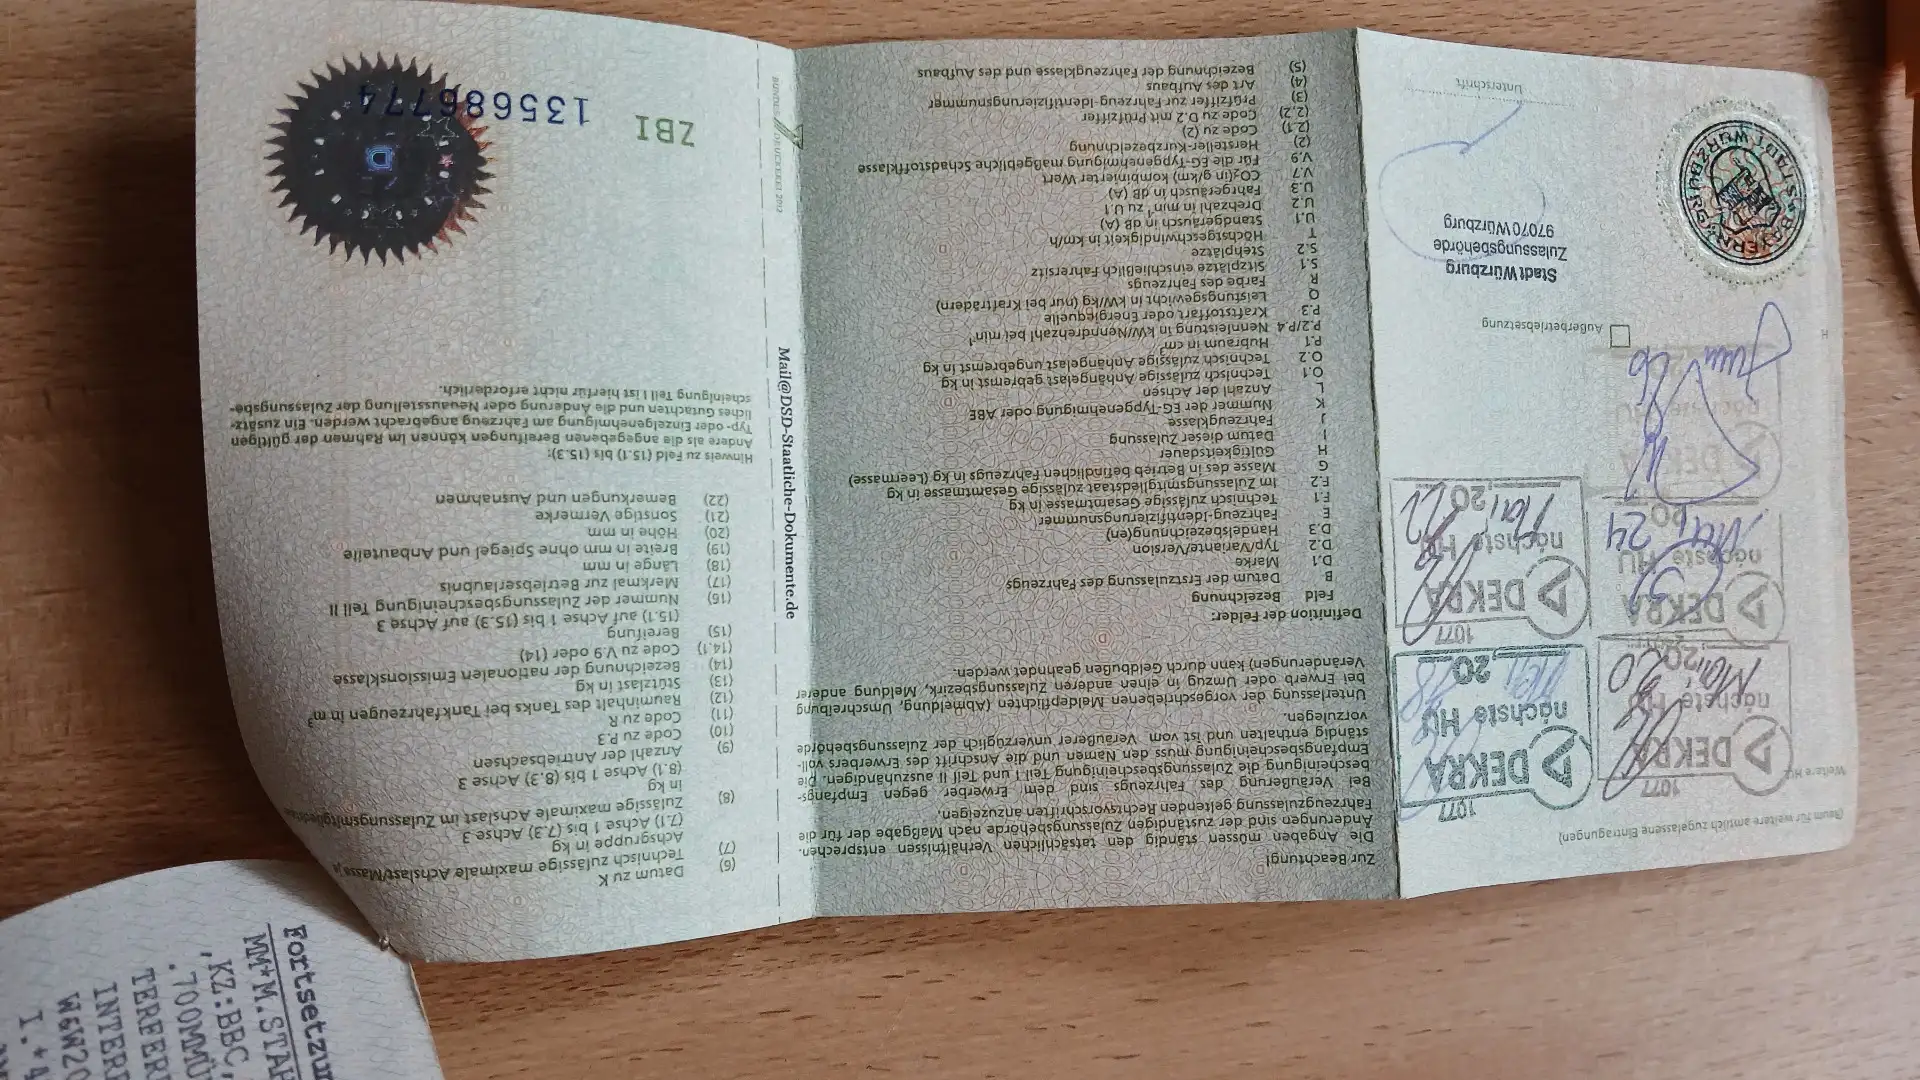 (Raum für weitere amtlich zugelassene Eintragungen)
Weitere HU
1077
DEKRA
nächste HU
Mai 20
1077
DEKRA
nächste HU
20 18
DEKRA
nächste HU
Mai 24
1077
DEKRA
nächste HU
Mai 2022
DEKRA
nächste HU
26
H
Außerbetriebsetzung
Stadt Würzburg
Zulassungsbehörde
97070 Würzburg
BAYERN
STADT WÜRZBURG
Unterschrift
Zur Beachtung!
Die Angaben müssen ständig den tatsächlichen Verhältnissen entsprechen.
Änderungen sind der zuständigen Zulassungsbehörde nach Maßgabe der für die
Fahrzeugzulassung geltenden Rechtsvorschriften anzuzeigen.
Bei Veräußerung des Fahrzeugs sind dem Erwerber gegen Empfangs-
bescheinigung die Zulassungsbescheinigung Teil I und Teil II auszuhändigen. Die
Empfangsbescheinigung muss den Namen und die Anschrift des Erwerbers voll-
ständig enthalten und ist vom Veräußerer unverzüglich der Zulassungsbehörde
vorzulegen.
Unterlassung der vorgeschriebenen Meldepflichten (Abmeldung, Umschreibung
bei Erwerb oder Umzug in einen anderen Zulassungsbezirk, Meldung anderer
Veränderungen) kann durch Geldbußen geahndet werden.
Definition der Felder:
Feld Bezeichnung
B Datum der Erstzulassung des Fahrzeugs
D.1 Marke
D.2 Typ/Variante/Version
D.3 Handelsbezeichnung(en)
E Fahrzeug-Identifizierungsnummer
F.1 Technisch zulässige Gesamtmasse in kg
F.2 Im Zulassungsmitgliedstaat zulässige Gesamtmasse in kg
G Masse des in Betrieb befindlichen Fahrzeugs in kg (Leermasse)
H Gültigkeitsdauer
I Datum dieser Zulassung
J Fahrzeugklasse
K Nummer der EG-Typgenehmigung oder ABE
L Anzahl der Achsen
O.1 Technisch zulässige Anhängelast gebremst in kg
O.2 Technisch zulässige Anhängelast ungebremst in kg
P.1 Hubraum in cm³
P.2/P.4 Nennleistung in kW/Nenndrehzahl bei min⁻¹
P.3 Kraftstoffart oder Energiequelle
Q Leistungsgewicht in kW/kg (nur bei Krafträdern)
R Farbe des Fahrzeugs
S.1 Sitzplätze einschließlich Fahrersitz
S.2 Stehplätze
T Höchstgeschwindigkeit in km/h
U.1 Standgeräusch in dB (A)
U.2 Drehzahl in min⁻¹ zu U.1
U.3 Fahrgeräusch in dB (A)
V.7 CO₂ (in g/km) kombinierter Wert
V.9 Für die EG-Typgenehmigung maßgebliche Schadstoffklasse
(2) Hersteller-Kurzbezeichnung
(2.1) Code zu (2)
(2.2) Code zu D.2 mit Prüfziffer
(3) Prüfziffer zur Fahrzeug-Identifizierungsnummer
(4) Art des Aufbaus
(5) Bezeichnung der Fahrzeugklasse und des Aufbaus
Mail@DSD-Staatliche-Dokumente.de
BUNDESDRUCKEREI 2012
(6) Datum zu K
(7) Technisch zulässige maximale Achslast/Masse je
Achsgruppe in kg
(7.1) Achse 1 bis (7.3) Achse 3
(8) Zulässige maximale Achslast im Zulassungsmitgliedstaat
in kg
(8.1) Achse 1 bis (8.3) Achse 3
(9) Anzahl der Antriebsachsen
(10) Code zu P.3
(11) Code zu R
(12) Rauminhalt des Tanks bei Tankfahrzeugen in m³
(13) Stützlast in kg
(14) Bezeichnung der nationalen Emissionsklasse
(14.1) Code zu V.9 oder (14)
(15) Bereifung
(15.1) auf Achse 1 bis (15.3) auf Achse 3
(16) Nummer der Zulassungsbescheinigung Teil II
(17) Merkmal zur Betriebserlaubnis
(18) Länge in mm
(19) Breite in mm ohne Spiegel und Anbauteile
(20) Höhe in mm
(21) Sonstige Vermerke
(22) Bemerkungen und Ausnahmen
Hinweis zu Feld (15.1) bis (15.3):
Andere als die angegebenen Bereifungen können im Rahmen der gültigen
Typ- oder Einzelgenehmigung am Fahrzeug angebracht werden. Ein zusätz-
liches Gutachten und die Änderung oder Neuausstellung der Zulassungsbe-
scheinigung Teil I ist hierfür nicht erforderlich.
ZBI
135686774
D
Fortsetzun
MM*M.STAH
,KZ:BBC,
.700MMÜ
TEREER
INTER
W&W20
I.*